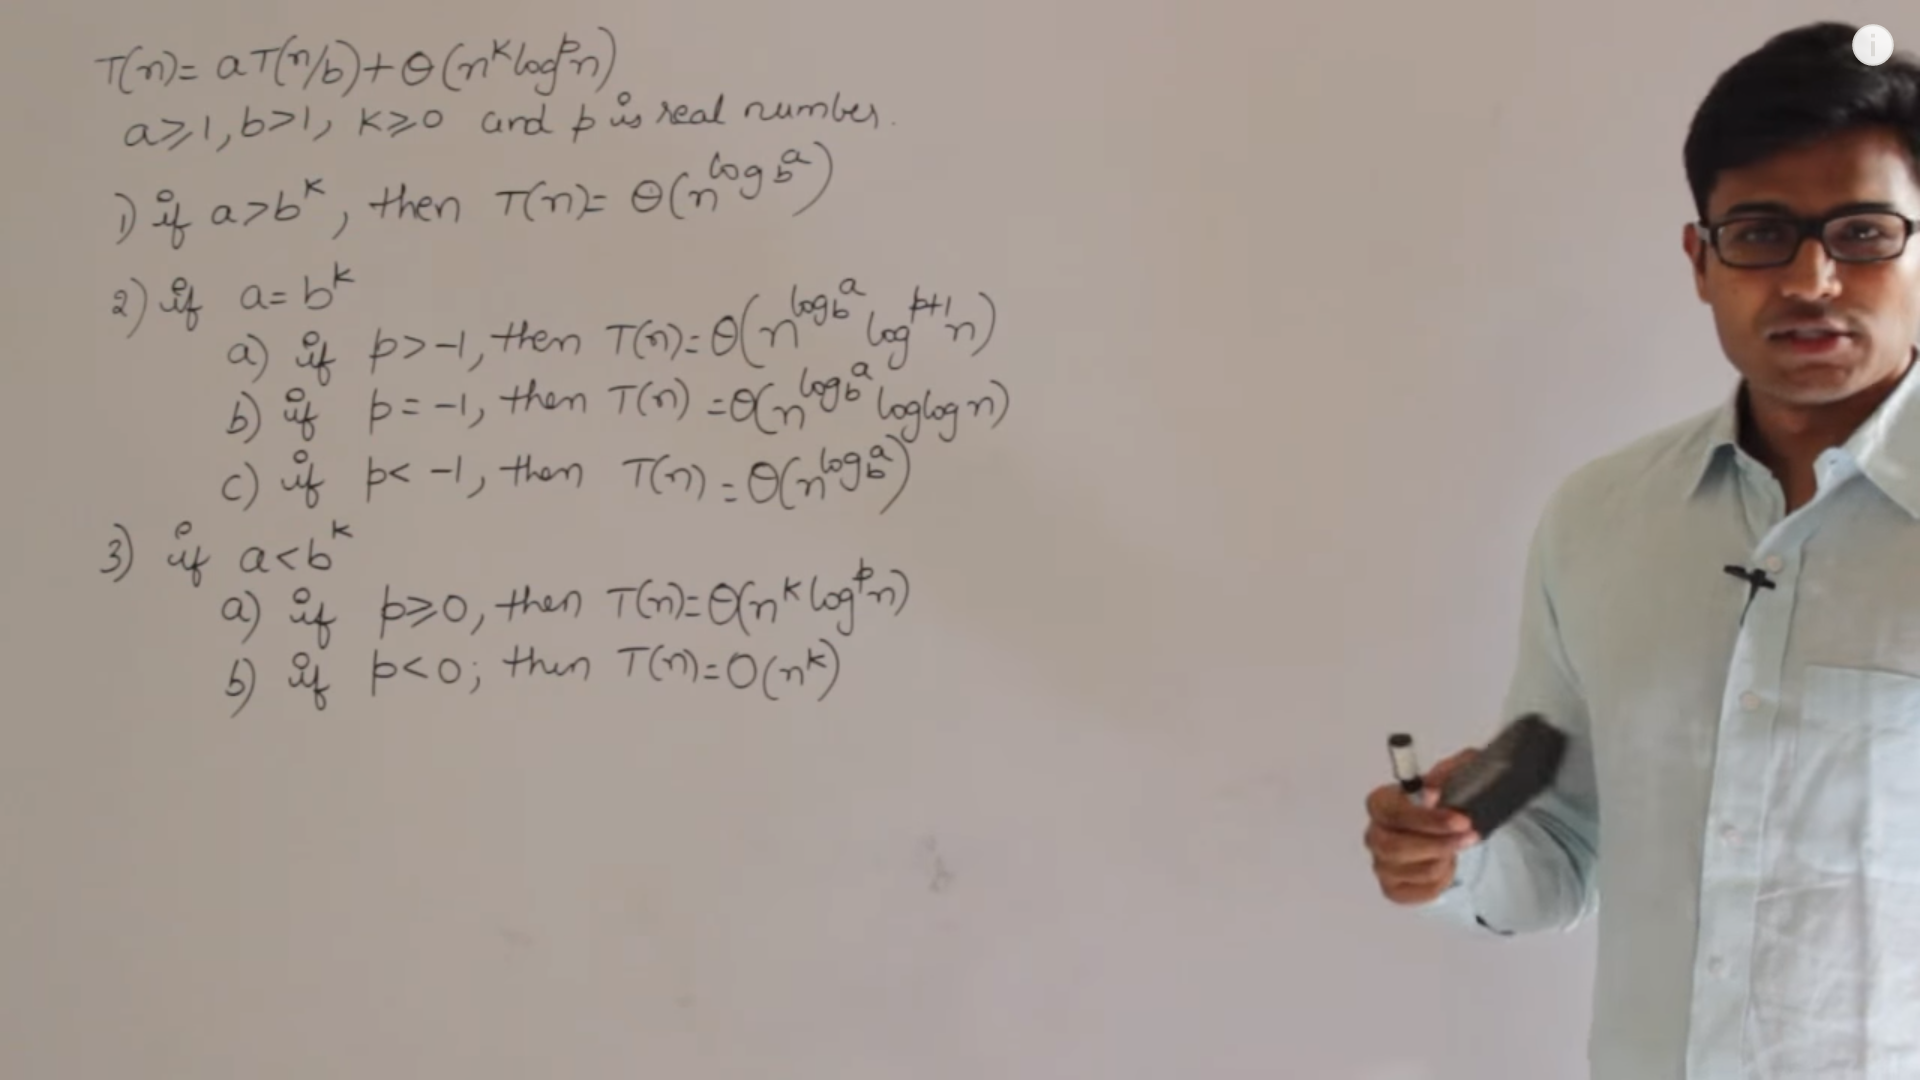 T(n)= aT(n/b)+θ(n^k log^p n)
a≥1, b>1, k≥0 and p is real number.
1) if a>b^k, then T(n)= θ(n^log_b^a)
2) if a=b^k
a) if p>-1, then T(n)=θ(n^log_b^a log^p+1 n)
b) if p=-1, then T(n)=θ(n^log_b^a loglog n)
c) if p<-1, then T(n)=θ(n^log_b^a)
3) if a<b^k
a) if p≥0, then T(n)=θ(n^k log^p n)
b) if p<0; then T(n)=O(n^k)